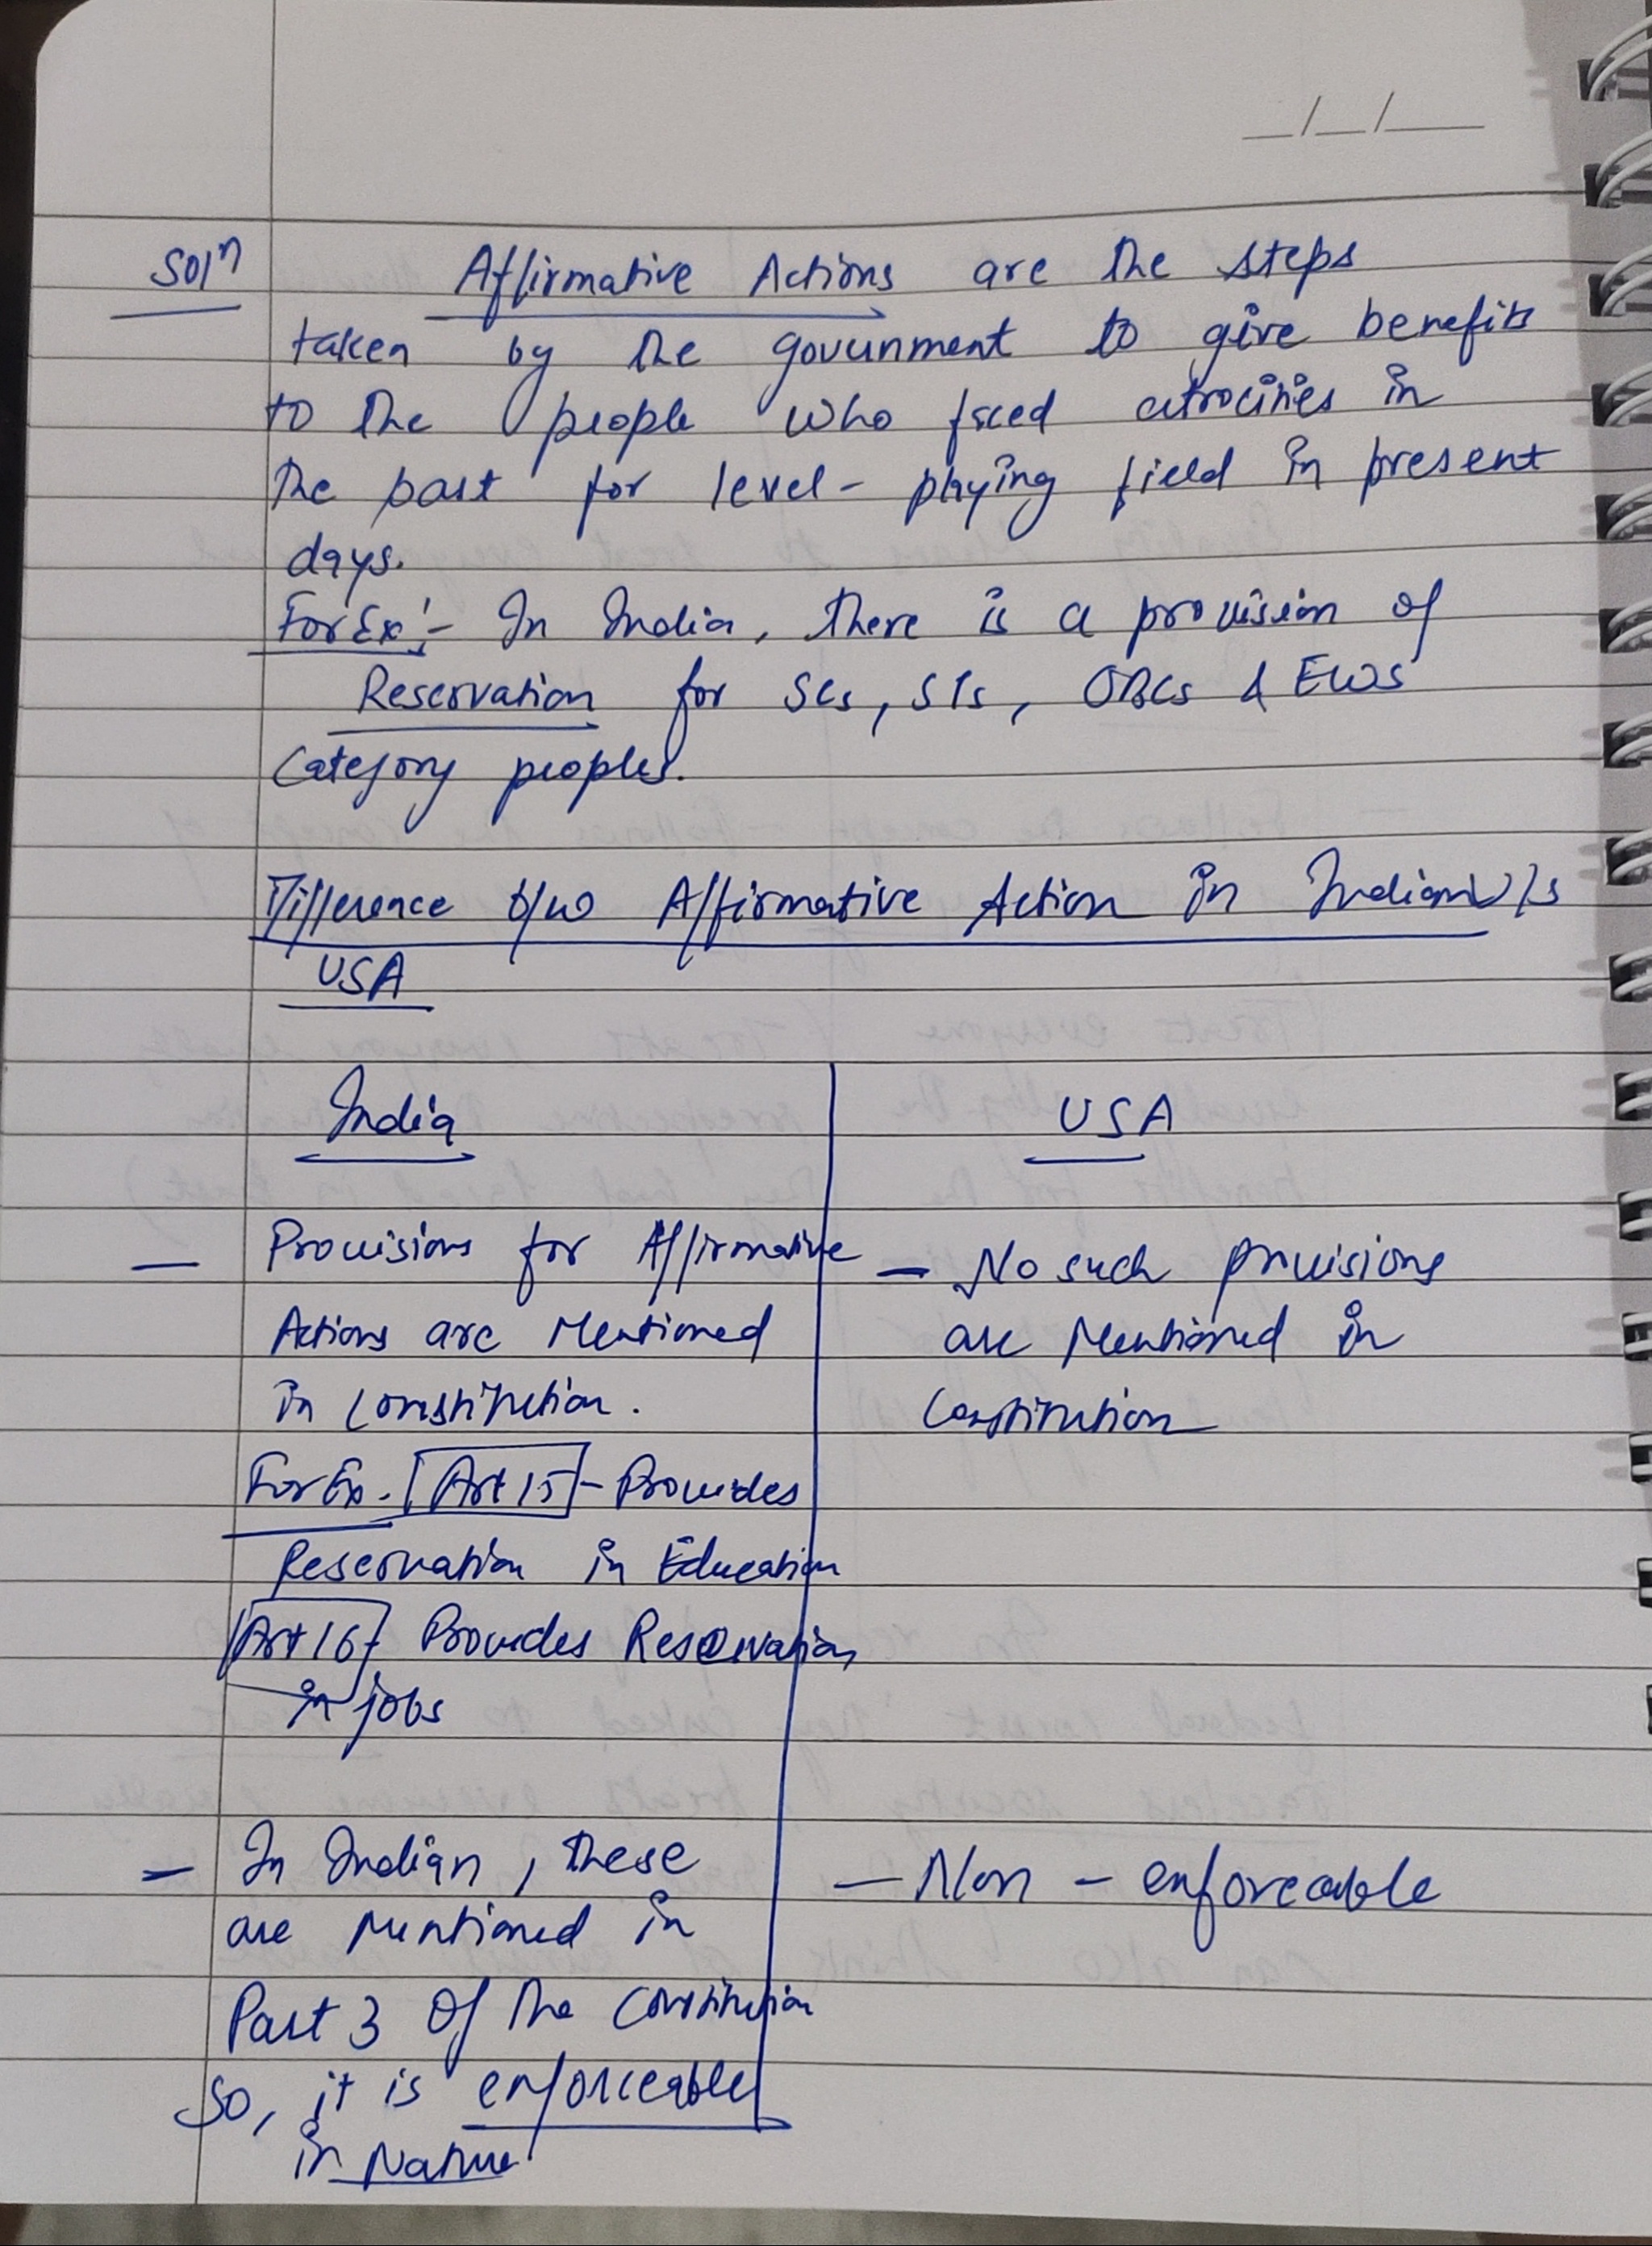 _/_/___
Solⁿ Affirmative Actions are the steps
taken by the government to give benefits
to the people who faced atrocities in
the past for level-playing field in present
days.
For Ex:- In India, there is a provision of
Reservation for SCs, STs, OBCs & EWS
Category peoples.
Difference b/w Affirmative Action in Indian v/s
USA
India
— Provisions for Affirmative
Actions are Mentioned
in Constitution.
For Ex. Art 15 - Provides
Reservation in Education
Art 16 Provides Reservation
in jobs
— In Indian, these
are Mentioned in
Part 3 Of the Constitution
So, it is enforceable
in Nature
USA
— No such provisions
are Mentioned in
Constitution
— Non - enforceable